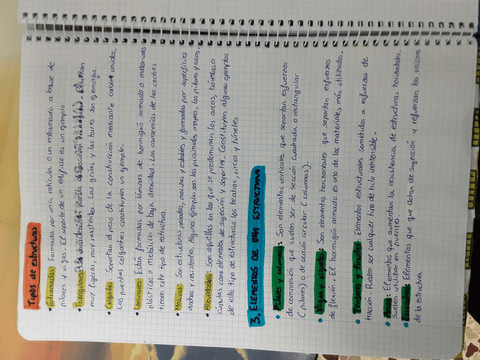 Tipos de estructuras
• Entramadas: Formadas por una retícula o un entramado a base de
pilares y vigas. El soporte de un edificio es un ejemplo
• Trianguladas:
muy ligeras, muy resistentes. Las grúas y las torres son ejemplos.
• Colgadas: Soportan el peso de la construcción mediante cables unidos,
Los puentes colgantes constituyen un ejemplo.
• Laminares: Están formadas por láminas de hormigón armado o materiales
plásticos o metálicos de bajo grosor. Las carrocerías de los coches
tienen este tipo de estructura.
• Masivas: Son estructuras pesadas, macizas y estables y formadas por superficies
anchas y resistentes. Algunos ejemplo son las pirámides, mayas, los pilares y arcos.
• Abovedadas: Son aquellas en las que se predominan los arcos, bóvedas o
cúpulas como elementos de sujeción y soporte. Constituyen algunos ejemplos
de este tipo de estructuras los teatros, circos y túneles
3. ELEMENTOS DE UNA ESTRUCTURA
• Pilares y columnas: Son elementos verticales que soportan esfuerzos
de compresión que suelen ser de sección cuadrada o rectangular
(pilares) o de sección circular (columnas).
• Vigas y viguetas: Son elementos horizontales que soportan esfuerzos
de flexión. El hormigón armado es uno de los materiales más utilizados.
• Tensores y tirantes: Elementos estructurales sometidos a esfuerzos de
tracción. Pueden ser cualquier tipo de hilo extensible.
• Arcos: Elementos que aumentan la resistencia de estructuras horizontales,
suelen utilizar en puentes
• Elementos que que dotan de sujeción y refuerzan las uniones
de la estructura.